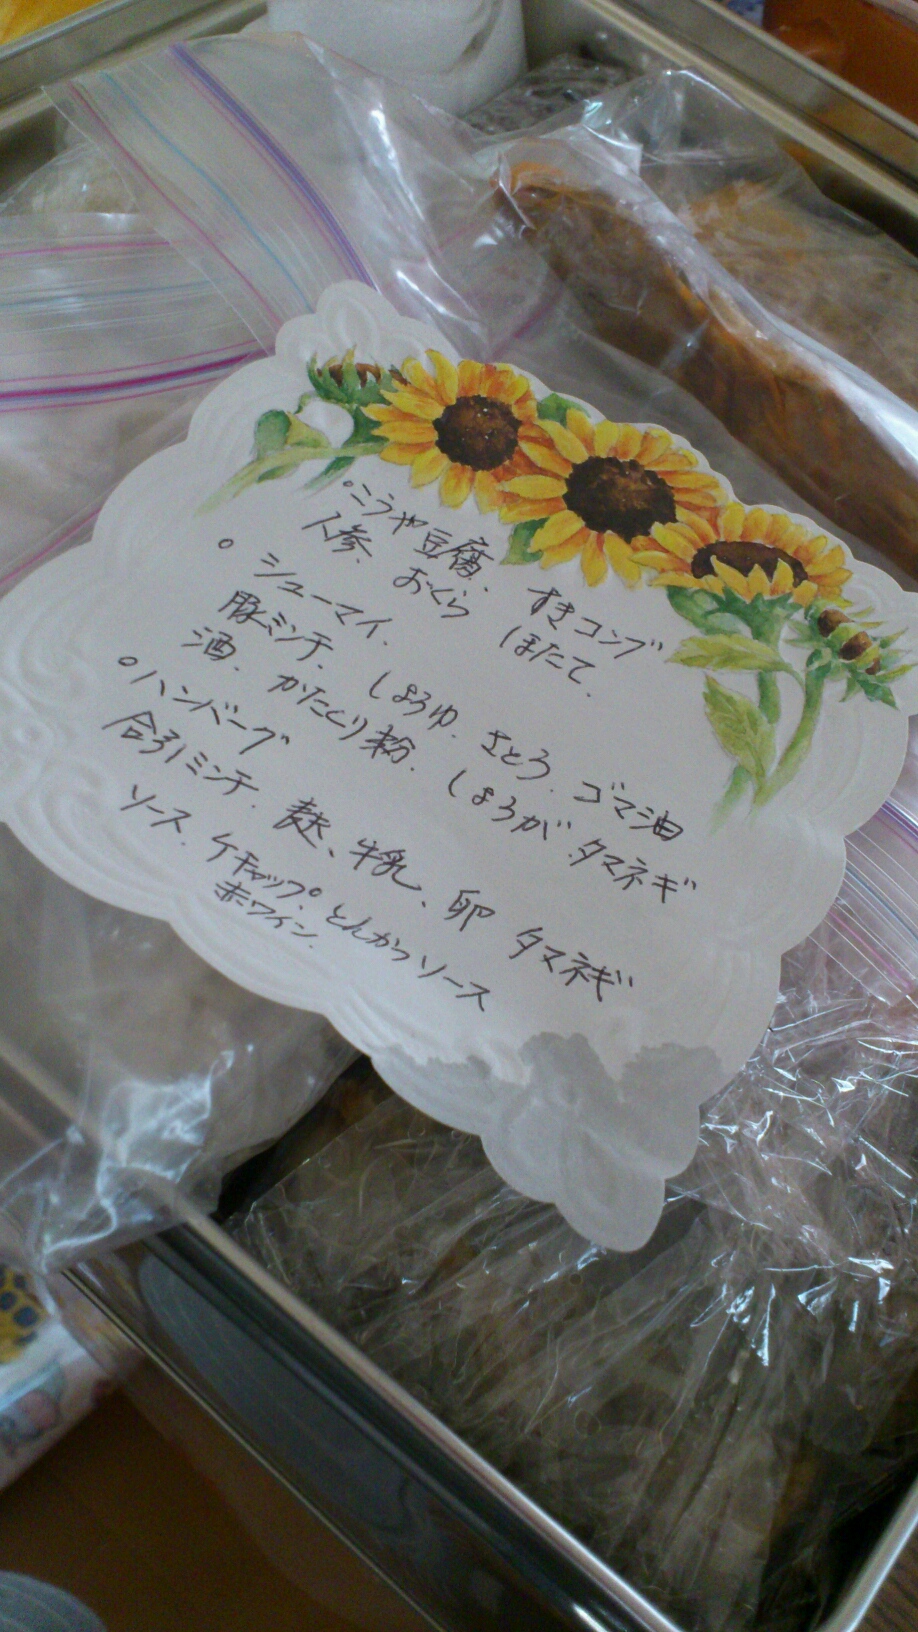 ○こうや豆腐、すきコンブ
人参、おくら ほたて、
○シューマイ、
豚ミンチ、しょうゆ、さとう、ゴマ油
酒、かたくり粉、しょうが、タマネギ
○ハンバーグ
合引ミンチ、麩、牛乳、卵 タマネギ
ソース、ケチャップ、とんかつソース
赤ワイン、